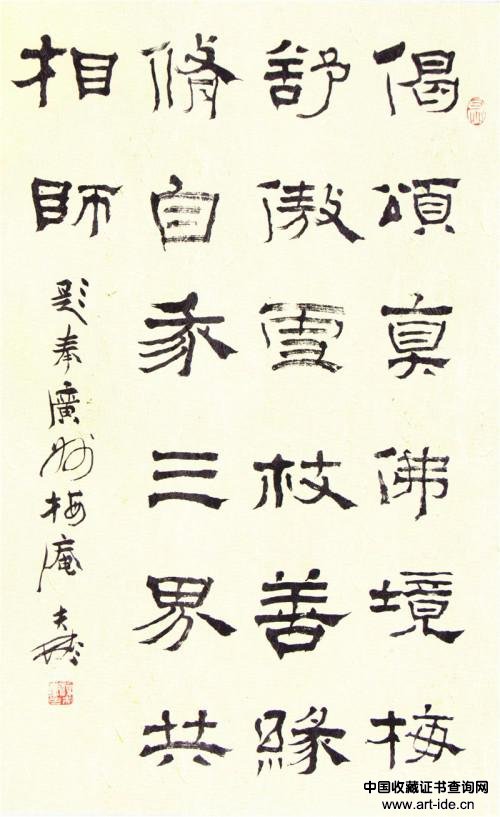 偈頌真佛境梅
舒傲雪枝善緣
脩自三界共
相師
題奉廣州梅庵
中国收藏证书查询网
www.art-ide.cn